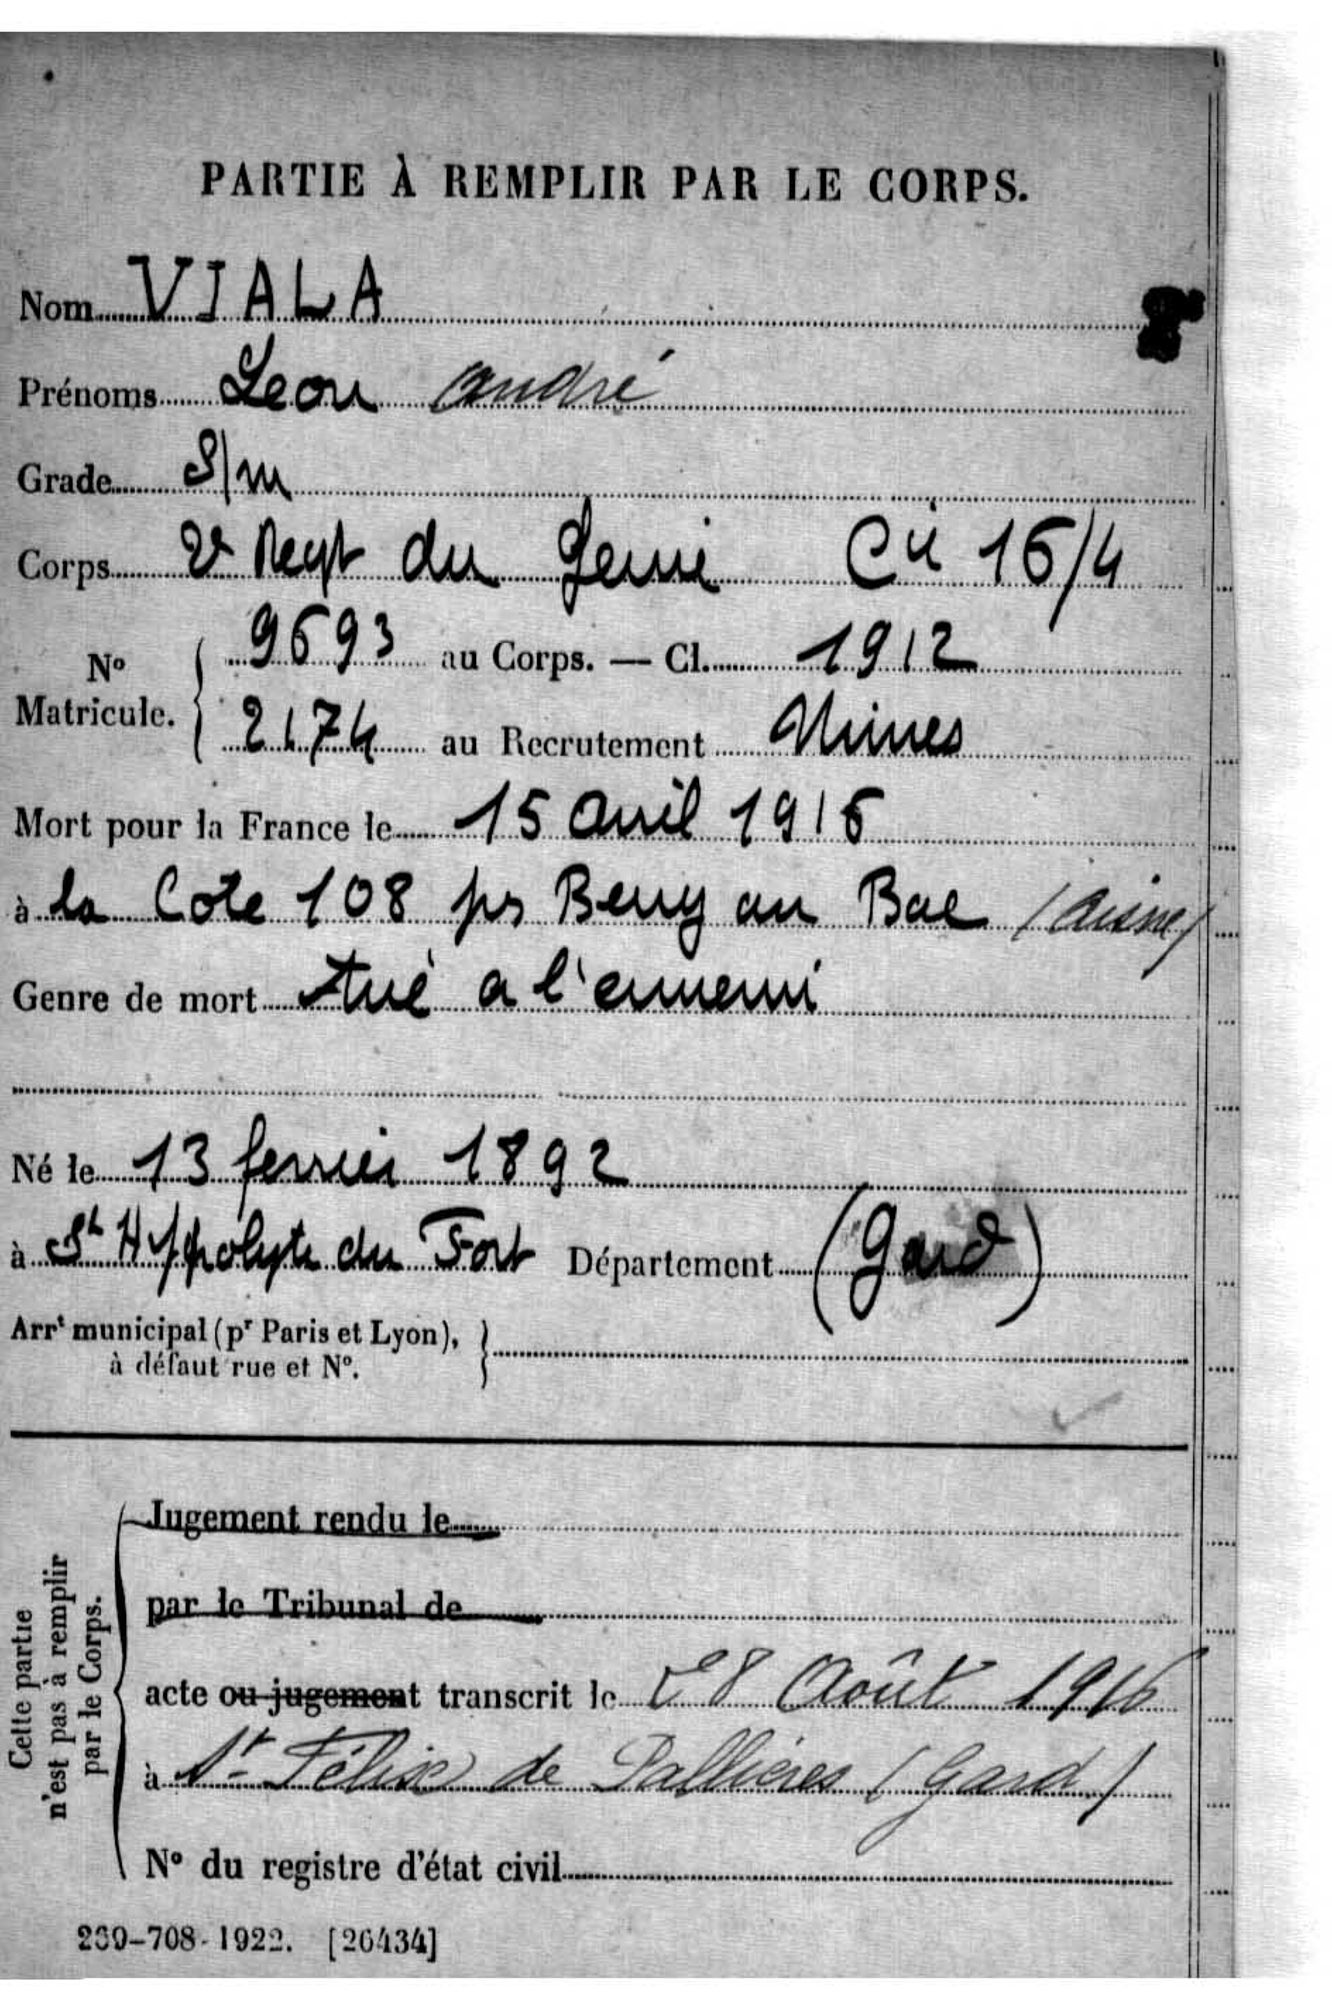 PARTIE À REMPLIR PAR LE CORPS.
Nom VIALA
Prénoms Leon André
Grade S/m
Corps 2e Regt du Genie Cie 16/4
No 9693 au Corps. — Cl. 1912
Matricule. 2174 au Recrutement Nimes
Mort pour la France le 15 Avril 1916
à la Cote 108 prs Berry au Bac (Aisne)
Genre de mort tué a l'ennemi
Né le 13 fevrier 1892
à St Hyppolyte du Fort Département (Gard)
Arrt municipal (pr Paris et Lyon),
à défaut rue et No.
Cette partie
n'est pas à remplir
par le Corps.
Jugement rendu le
par le Tribunal de
acte ou jugement transcrit le 28 Août 1916
à St Félix de Pallières (Gard)
No du registre d'état civil
239-708-1922. [26434]